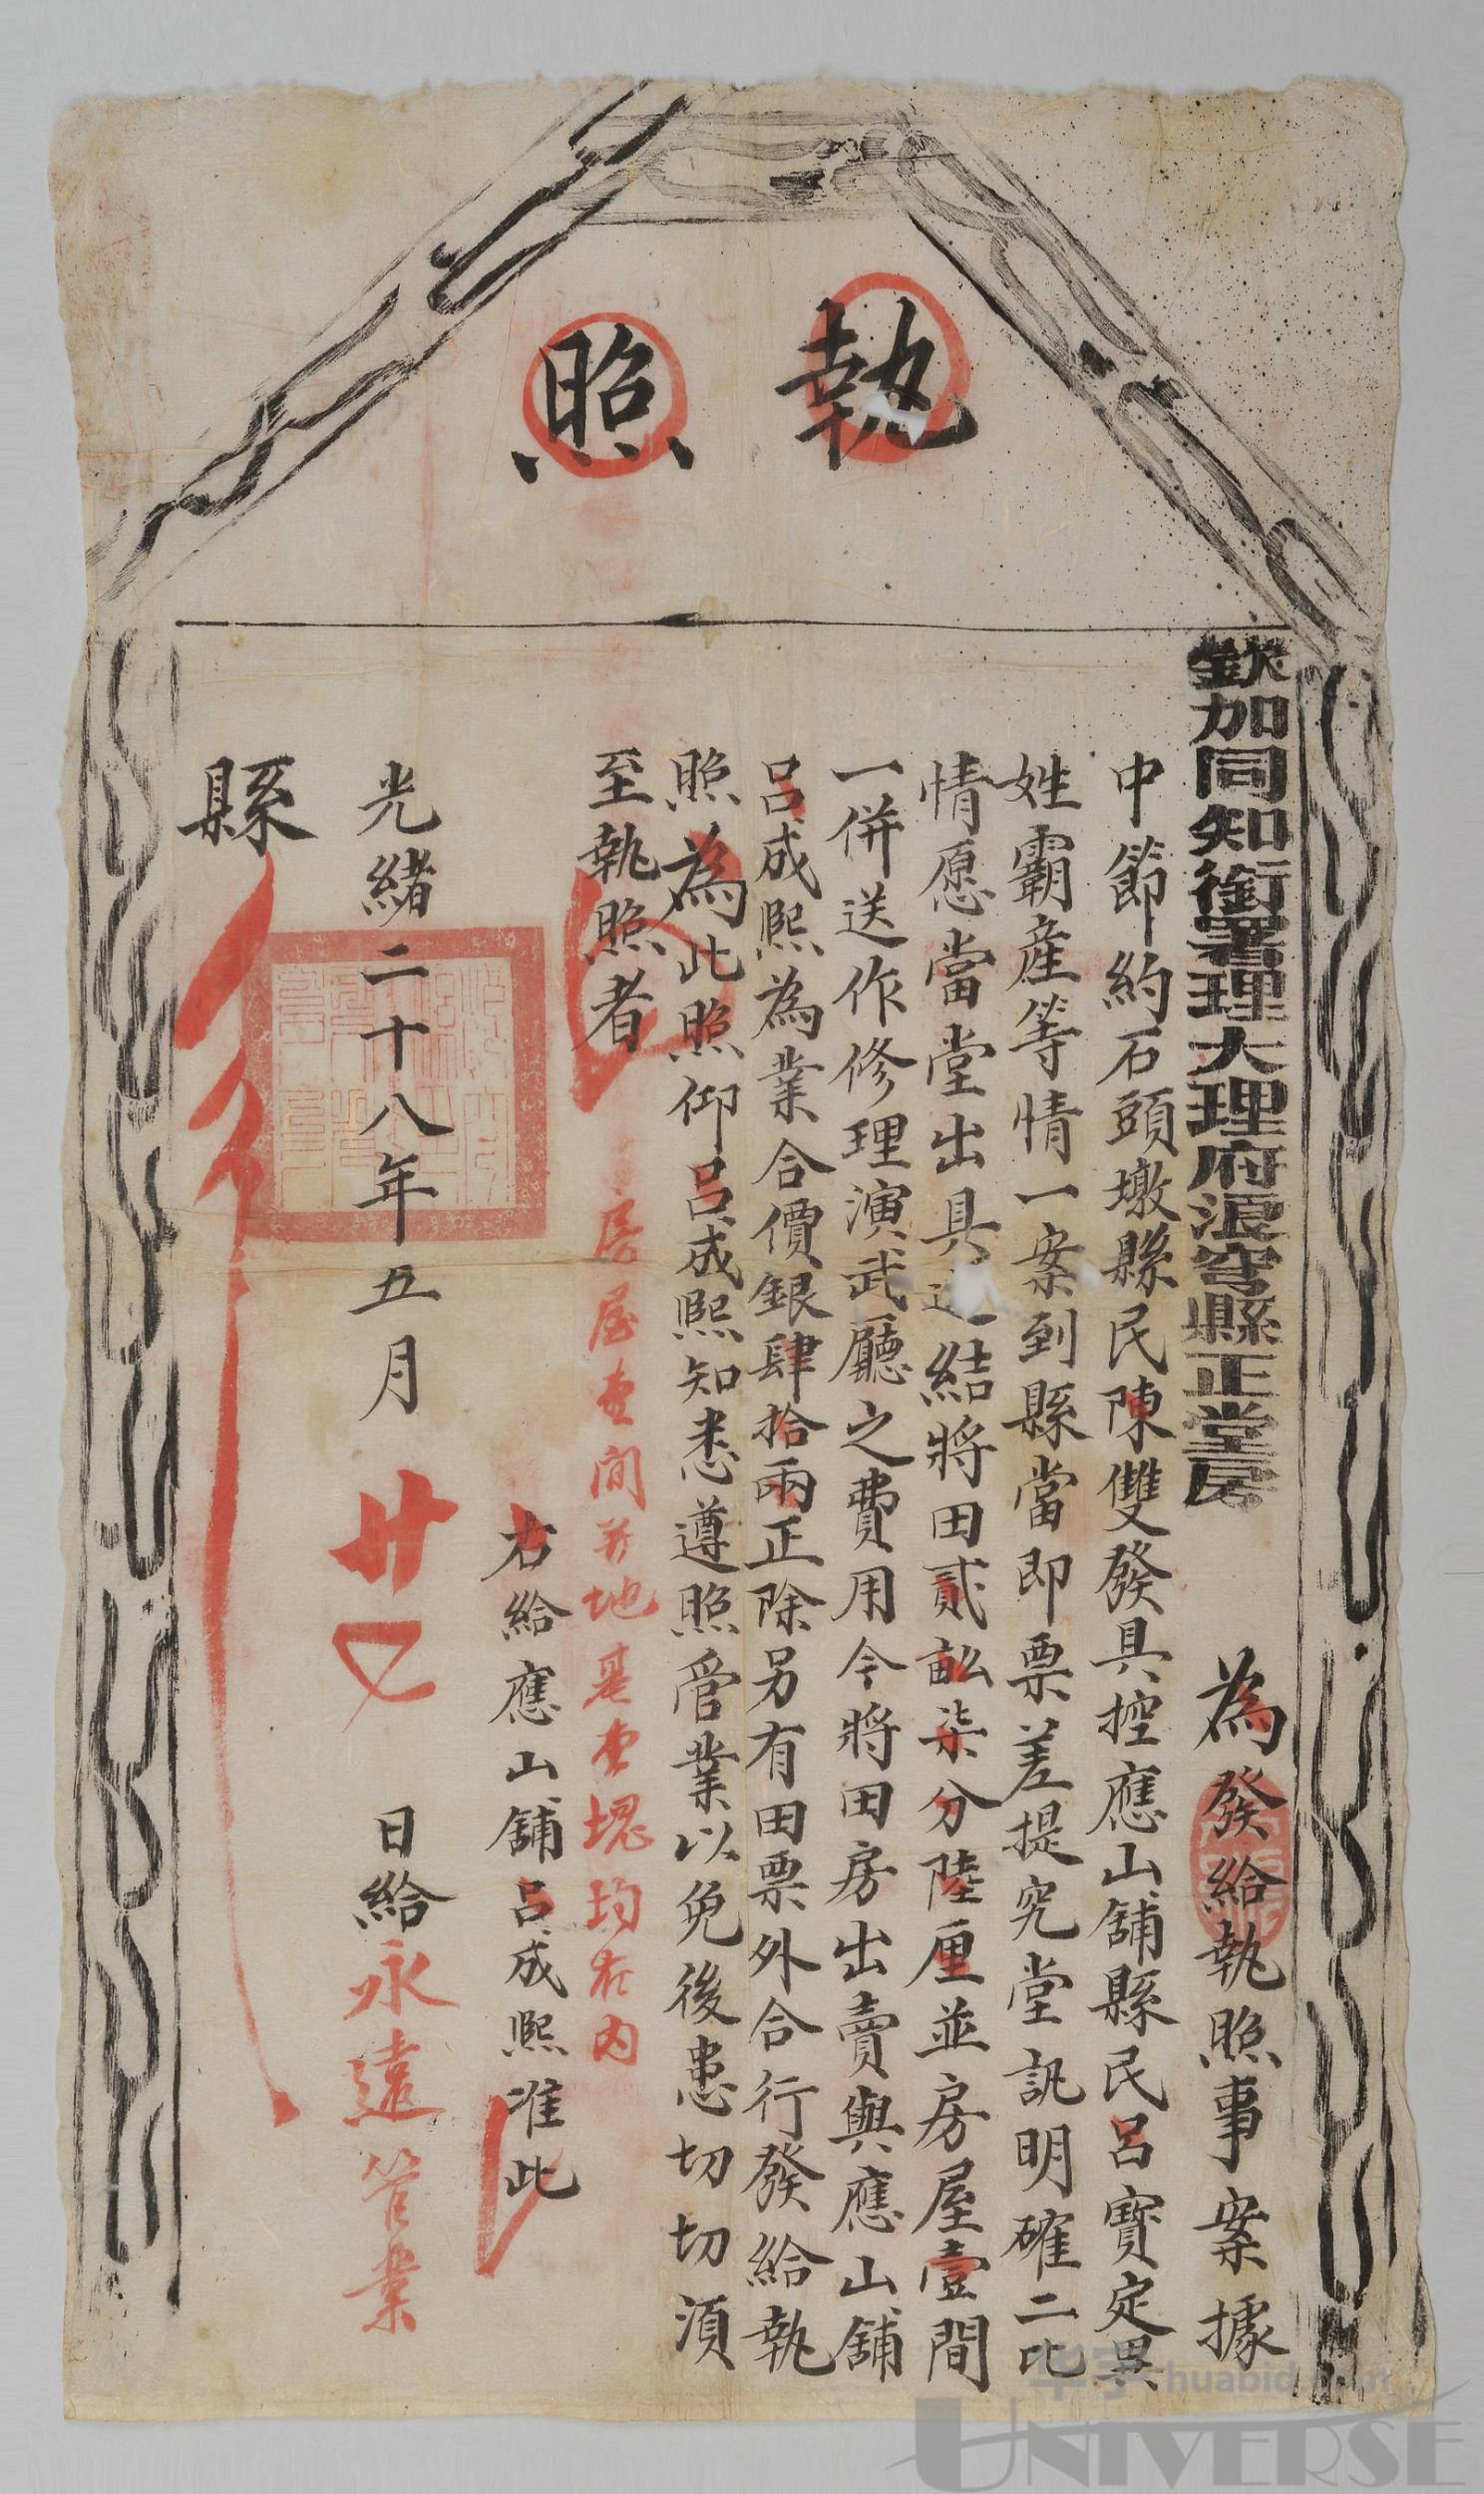 執照
欽加同知銜署理大理府浪穹縣正堂房 為發給執照事案據
中節約石頭墩縣民陳雙發具控應山舖縣民呂寶定異
姓霸産等情一案到縣當即票差提究堂訊明確二比
情愿當堂出具 結將田貳畝柒分陸厘並房屋壹間
一併送作修理演武廳之費用今將田房出賣與應山舖
呂成熙為業合價銀肆拾兩正除另有田票外合行發給執
照為此照仰呂成熙知悉遵照管業以免後患切切須
至執照者
房屋壹間并地基壹塊均在内
右給應山舖呂成熙准此
光緒二十八年五月廿 日給永遠管業
縣
华宇 huabid.com
UNIVERSE